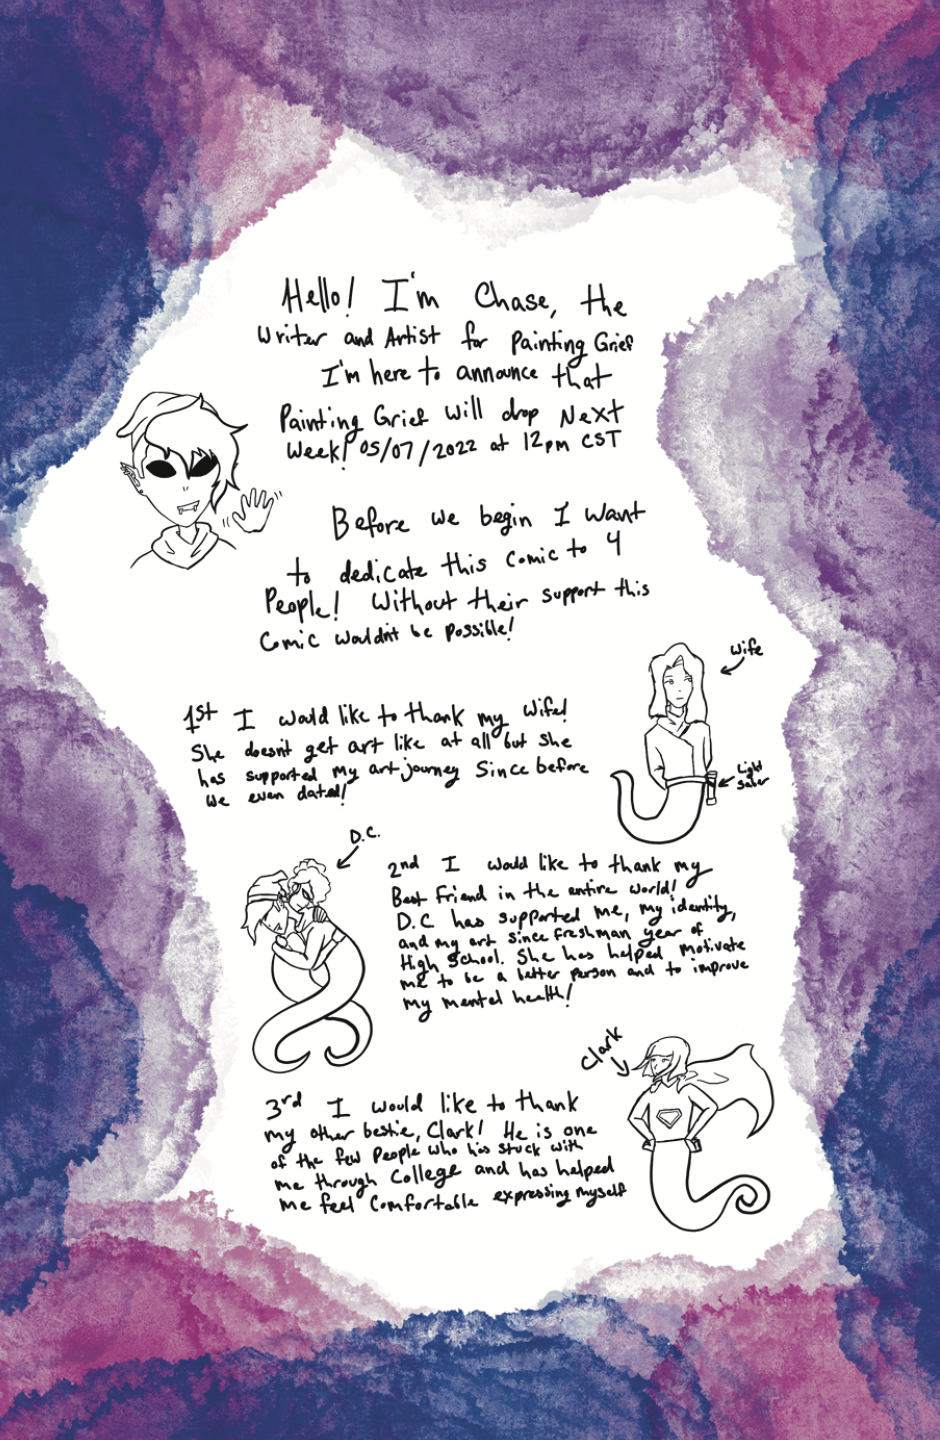 Hello! I'm Chase, the
Writer and Artist for Painting Grief
I'm here to announce that
Painting Grief will drop Next
Week! 05/07/2022 at 12pm CST
Before we begin I want
to dedicate this comic to 4
People! Without their support this
Comic wouldn't be possible!
Wife
1st I would like to thank my Wife!
She doesn't get art like at all but she
has supported my art journey Since before
We even dated!
Light
Saber
D.C.
2nd I would like to thank my
Best Friend in the entire world!
D.C has supported me, my identity,
and my art since freshman year of
High School. She has helped motivate
me to be a better person and to improve
my mental health!
Clark
3rd I would like to thank
my other bestie, Clark! He is one
of the few People who has stuck with
me through College and has helped
me feel Comfortable expressing myself